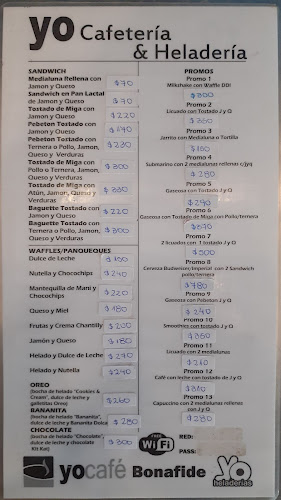 yo Cafetería
& Heladería
SANDWICH
Medialuna Rellena con
Jamon y Queso $70
Sandwich en Pan Lactal
de Jamon y Queso $70
Tostado de Miga con
Jamon y Queso $220
Pebeton Tostado con
Jamon y Queso $170
Pebeton Tostado con $230
Ternera o Pollo, Jamon,
Queso y Verduras
Tostado de Miga con $300
Pollo o Ternera, Jamon,
Queso y Verduras
Tostado de Miga con
Atún, Jamon, Queso $330
y Verduras
Baguette Tostado con
Jamon y Queso $220
Baguette Tostado con
Ternera o Pollo, Jamon $300
Queso y Verduras
WAFFLES/PANQUEQUES
Dulce de Leche
Nutella y Chocochips $240
Mantequilla de Mani y
Chocochips $220
Queso y Miel $180
Frutas y Crema Chantilly $200
Jamón y Queso $180
Helado y Dulce de Leche $270
Helado y Nutella $240
OREO
(bocha de helado "Cookies &
Cream", dulce de leche y
galletitas Oreo) $260
BANANITA
(bocha de helado "Bananita",
dulce de leche y Bananita Dolca) $280
CHOCOLATE
(bocha de helado "Chocolate",
dulce de leche y chocolate
Kit Kat) $300
PROMOS
Promo 1
Milkshake con Waffle DDl
$300
Promo 2
Licuado con Tostado J y Q
$350
Promo 3
Jarrito con Medialuna o Tortilla
$160
Promo 4
Submarino con 2 medialunas rellenas c/jyq
$280
Promo 5
Gaseosa con Tostado J y Q
$290
Promo 6
Gaseosa con Tostado de Miga con Pollo/ternera
Promo 7
2 licuados con 1 tostado J y Q
$500
Promo 8
Cerveza Budweiser/Imperial con 2 Sandwich
pollo/ternera
$780
Promo 9
Gaseosa con Pebeton J y Q
$240
Promo 10
Smoothies con tostado J y Q
$350
Promo 11
Licuado con 2 medialunas
$260
Promo 12
Café con leche con tostado de J y Q
Promo 13
Capuccino con 2 medialunas rellenas con J y Q
$280
yocafé Bonafide yo
heladerías
FREE
WiFi
RED:
PASS: